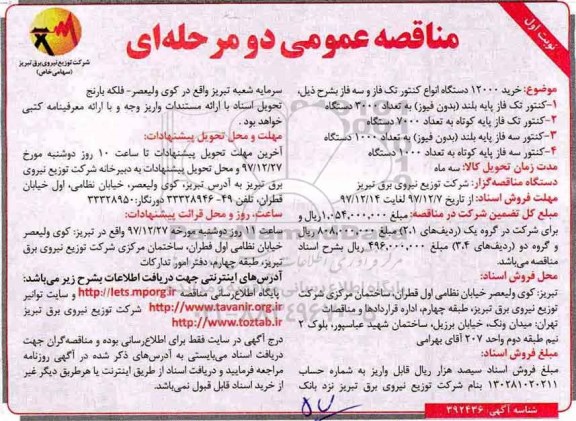 نوبت اول
مناقصه عمومی دو مرحله‌ای
شرکت توزیع نیروی برق تبریز
(سهامی خاص)
موضوع: خرید ۱۲۰۰۰ دستگاه انواع کنتور تک فاز و سه فاز بشرح ذیل،
۱-کنتور تک فاز پایه بلند (بدون فیوز) به تعداد ۳۰۰۰ دستگاه
۲-کنتور تک فاز پایه کوتاه به تعداد ۷۰۰۰ دستگاه
۳-کنتور سه فاز پایه بلند (بدون فیوز) به تعداد ۱۰۰۰ دستگاه
۴-کنتور سه فاز پایه کوتاه به تعداد ۱۰۰۰ دستگاه
مدت زمان تحویل کالا: سه ماه
دستگاه مناقصه‌گزار: شرکت توزیع نیروی برق تبریز
مهلت فروش اسناد: از تاریخ ۹۷/۱۲/۷ لغایت ۹۷/۱۲/۱۴
مبلغ کل تضمین شرکت در مناقصه: مبلغ ۱,۰۵۴,۰۰۰,۰۰۰ ریال و
برای شرکت در گروه یک (ردیف‌های ۲،۱) مبلغ ۸۰۸,۰۰۰,۰۰۰ ریال
و گروه دو (ردیف‌های ۳،۴) مبلغ ۴۹۶,۰۰۰,۰۰۰ ریال بشرح اسناد
مناقصه می‌باشد.
محل فروش اسناد:
تبریز: کوی ولیعصر خیابان نظامی اول قطران، ساختمان مرکزی شرکت
توزیع نیروی برق تبریز، طبقه چهارم، اداره قراردادها و مناقصات
تهران: میدان ونک، خیابان برزیل، ساختمان شهید عباسپور، بلوک ۲
نیم طبقه دوم واحد ۲۰۷ آقای بهرامی
مبلغ فروش اسناد:
مبلغ فروش اسناد سیصد هزار ریال قابل واریز به شماره حساب
۱۳۰۲۸۱۰۲۰۲۱۱ بنام شرکت توزیع نیروی برق تبریز نزد بانک
سرمایه شعبه تبریز واقع در کوی ولیعصر- فلکه بارنج
تحویل اسناد با ارائه مستندات واریز وجه و با ارائه معرفینامه کتبی
خواهد بود.
مهلت و محل تحویل پیشنهادات:
آخرین مهلت تحویل پیشنهادات تا ساعت ۱۰ روز دوشنبه مورخ
۹۷/۱۲/۲۷ و محل تحویل پیشنهادات به دبیرخانه شرکت توزیع نیروی
برق تبریز به آدرس تبریز، کوی ولیعصر، خیابان نظامی، اول خیابان
قطران، تلفن ۴۹- ۳۳۳۲۸۹۴۶ دورنگار: ۳۳۳۲۸۹۵۰
ساعت، روز و محل قرائت پیشنهادات:
ساعت ۱۱ روز دوشنبه مورخ ۹۷/۱۲/۲۷ واقع در تبریز: کوی ولیعصر
خیابان نظامی اول قطران، ساختمان مرکزی شرکت توزیع نیروی برق
تبریز، طبقه چهارم، دفتر امور تدارکات
آدرس‌های اینترنتی جهت دریافت اطلاعات بشرح زیر می‌باشد:
پایگاه اطلاع‌رسانی مناقصه http://iets.mporg.ir و سایت توانیر
http://www.tavanir.org.ir شرکت توزیع نیروی برق تبریز
http://www.toztab.ir
درج آگهی در سایت فقط برای اطلاع‌رسانی بوده و مناقصه‌گران جهت
دریافت اسناد می‌بایستی به آدرس‌های ذکر شده در آگهی روزنامه
مراجعه فرمایید و دریافت اسناد از طریق اینترنت یا هرطریق دیگر غیر
از خرید اسناد قابل قبول نمی‌باشد.
شناسه آگهی: ۳۹۲۴۳۶